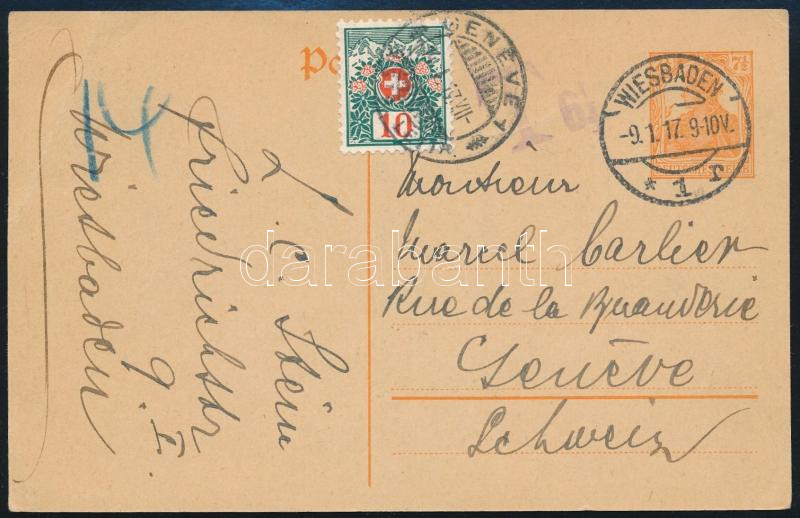 GENÈVE 1
10
7½
WIESBADEN
-9.1.17. 9-10V.
* 1 r
Monsieur
Marcel Carlier
Rue de la Buanderie
Genève
Schweiz
Stein
Friedrichstr
9. I.
Wiesbaden
darabanth